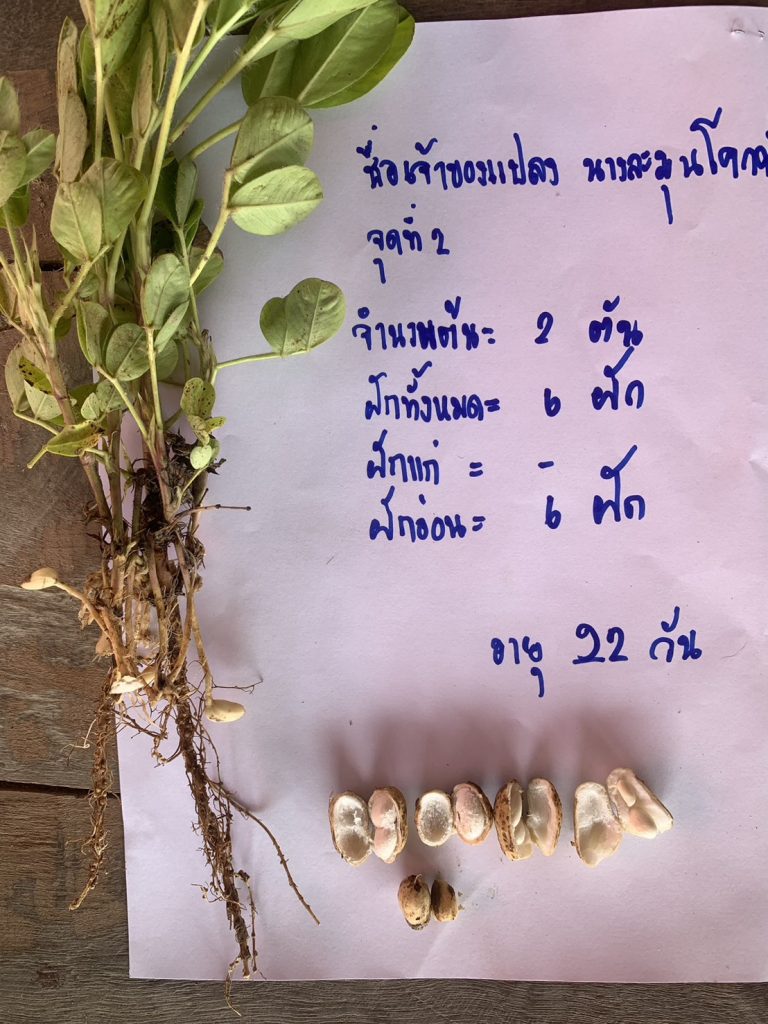 ชื่อเจ้าของแปลง นางละมุน
จุดที่ 2
จำนวนต้น= 2 ต้น
ฝักทั้งหมด= 6 ฝัก
ฝักแก่ = -
ฝักอ่อน= 6 ฝัก
อายุ 22 วัน